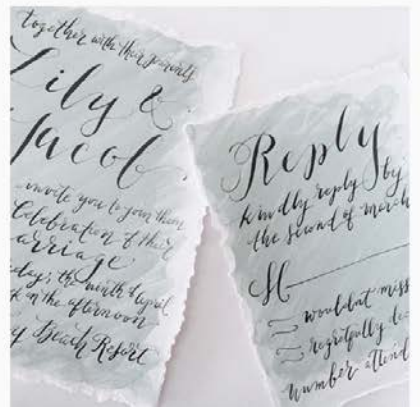 together with their parents
Lily &
Jacob
invite you to join them
Celebration of their
arriage
day, the ninth of april
k in the afternoon
y Beach Resort
Reply
kindly reply by
the second of march
M
wouldnt miss
regretfully de
number attend